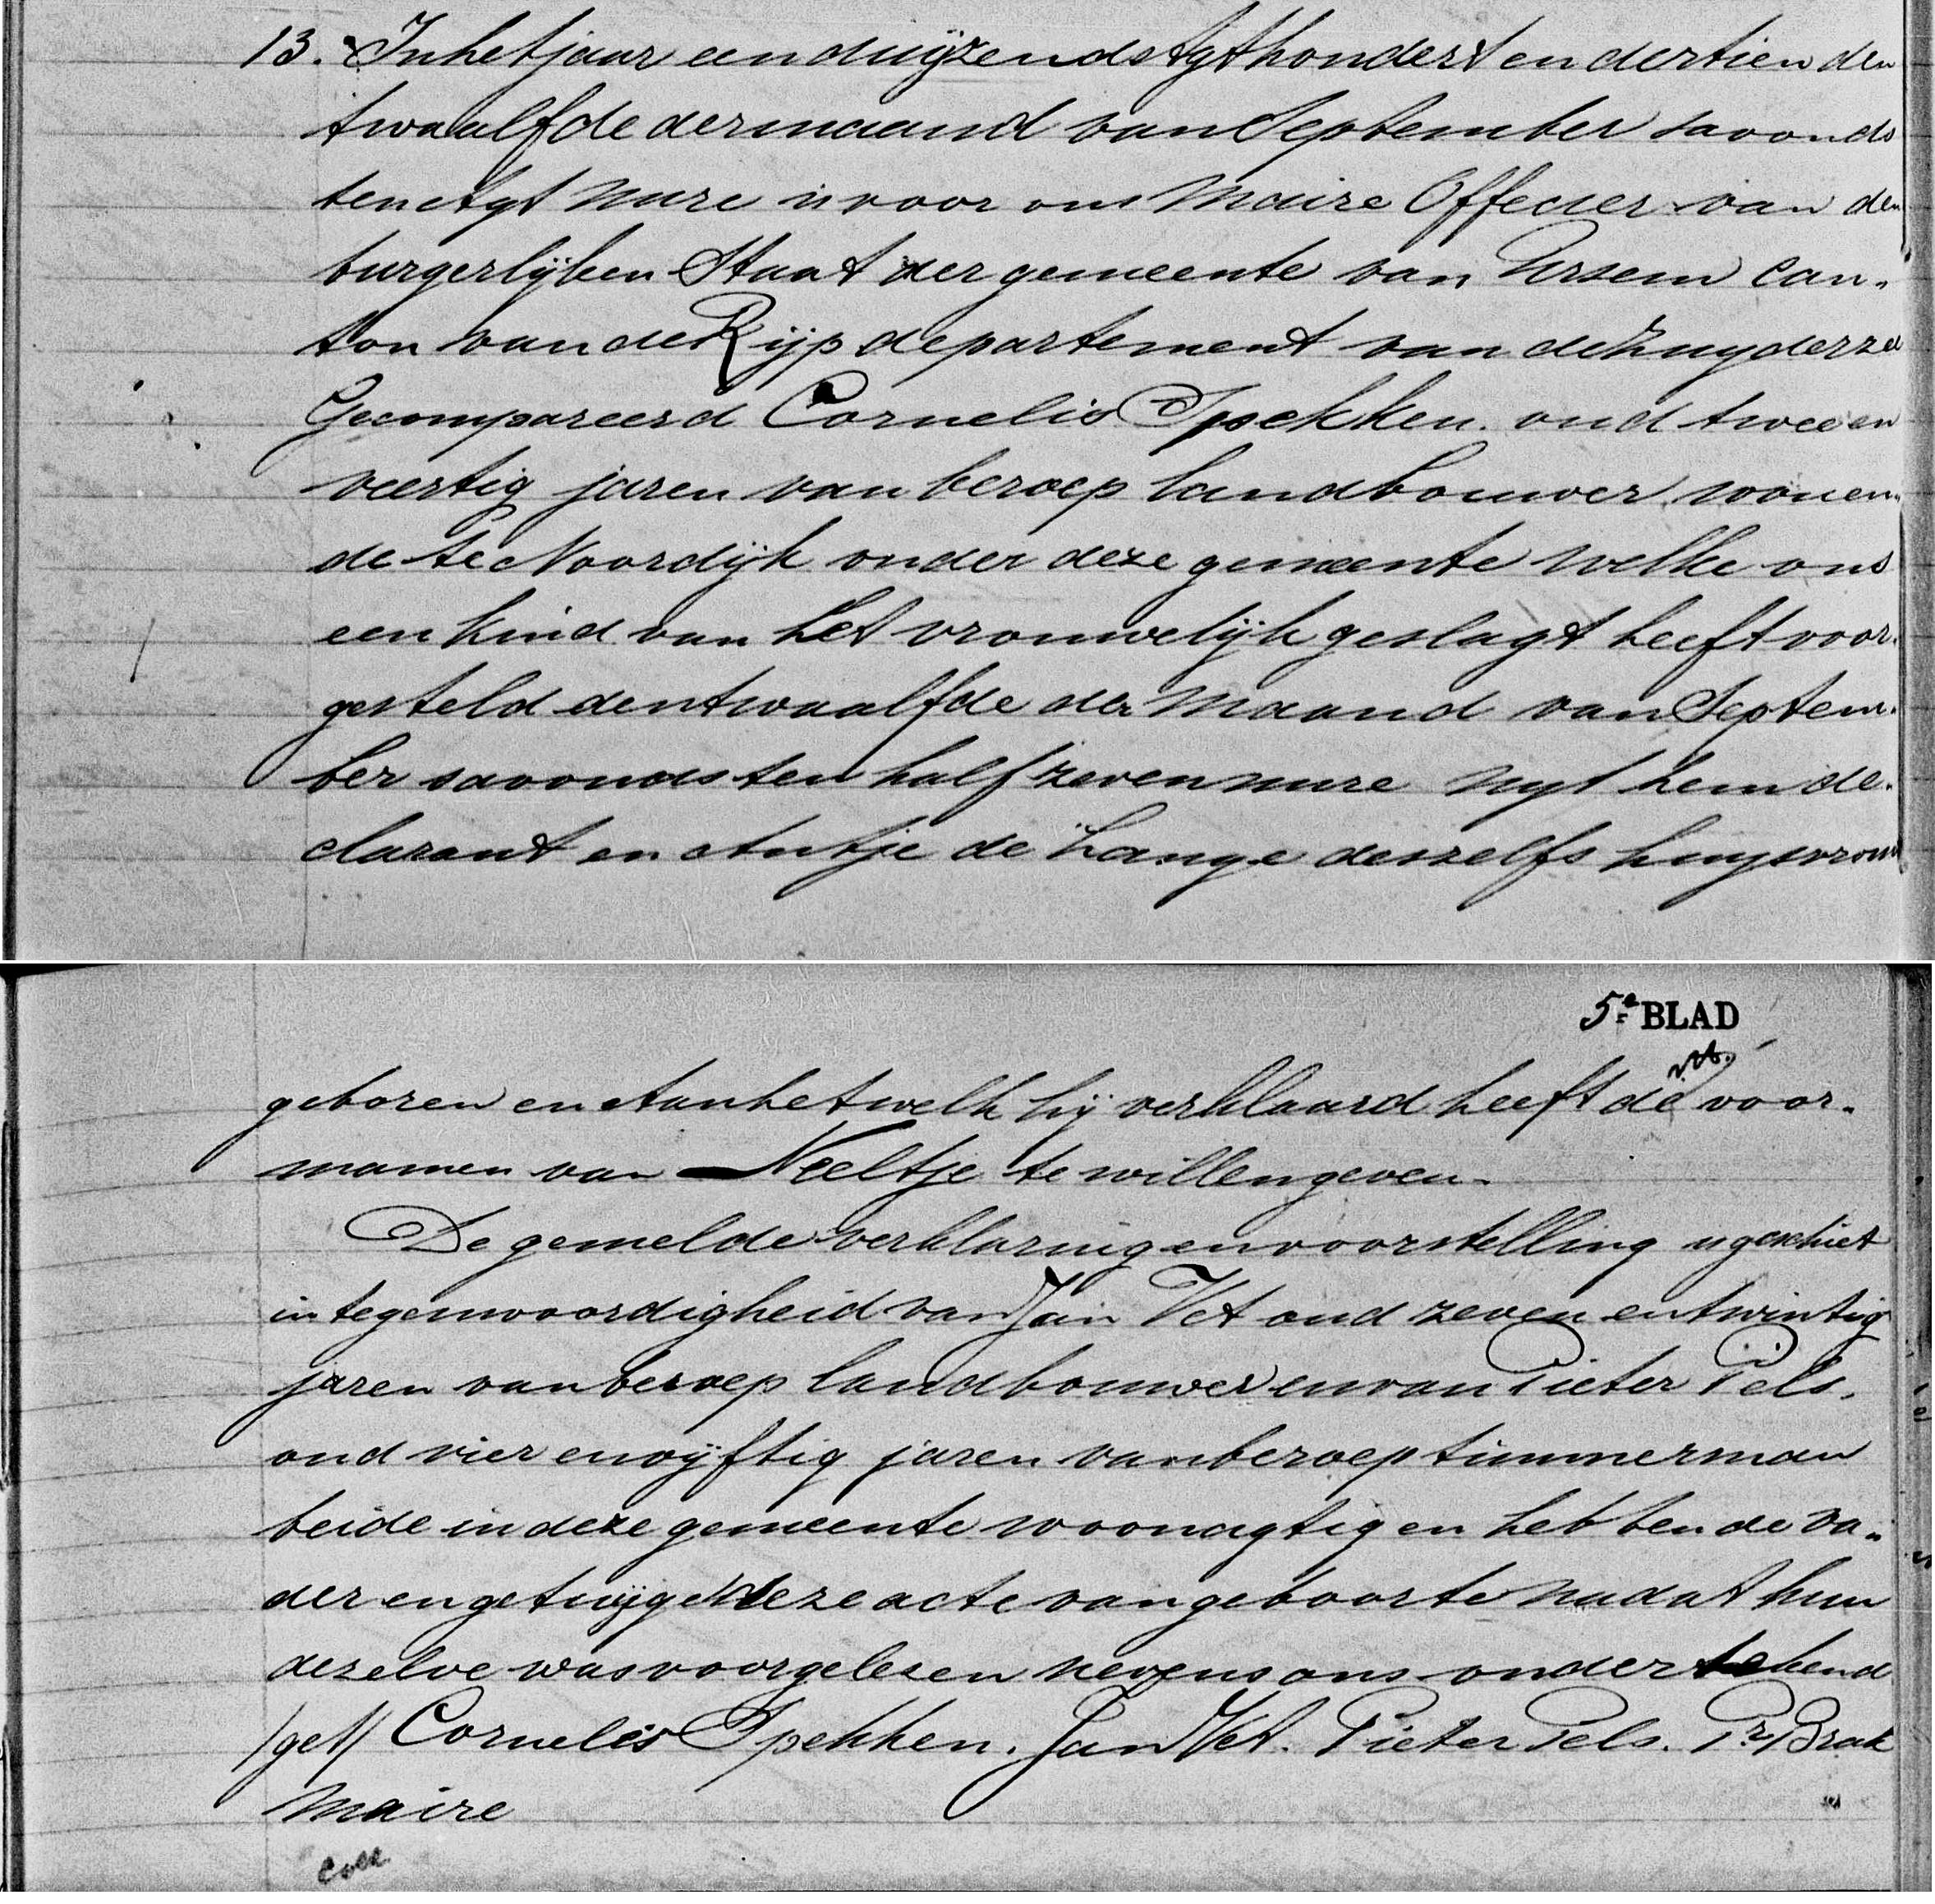 13. In het jaar een duijzend agt hondert en dertien den
twaalfde der maand van September savonds
ten agt uure is voor ons Maire Offecier van den
burgerlijken Staat der gemeente van Ursem Can-
ton van de Rijp departement van de Zuyderzee
Gecompareerd Cornelis Spekken oud twee en
veertig jaren van beroep landbouwer wonen-
de te Noordijk onder deze gemeente welke ons
een kind van het vrouwelijk geslagt heeft voor-
gesteld den twaalfde der Maand van Septem-
ber savonds ten half zeven uure uyt hem de-
clarant en Antje de Lange deszelfs huysvrouw
5e BLAD
geboren en Aan hetwelk hij verklaard heeft de voor-
namen van Neeltje te willen geven.
De gemelde verklaring en voorstelling is geschiet
in tegenwoordigheid van Jan Vet oud zeven en twintig
jaren van beroep landbouwer en van Pieter Pels.
oud vier en vijftig jaren van beroep timmerman
beide in deze gemeente woonagtig en hebben de va-
der en getuijgen deze acte van geboorte nadat hun
dezelve was voorgelezen nevens ons ondertekend
/get/ Cornelis Spekken. Jan Vet. Pieter Pels. Pr. Brak
Maire